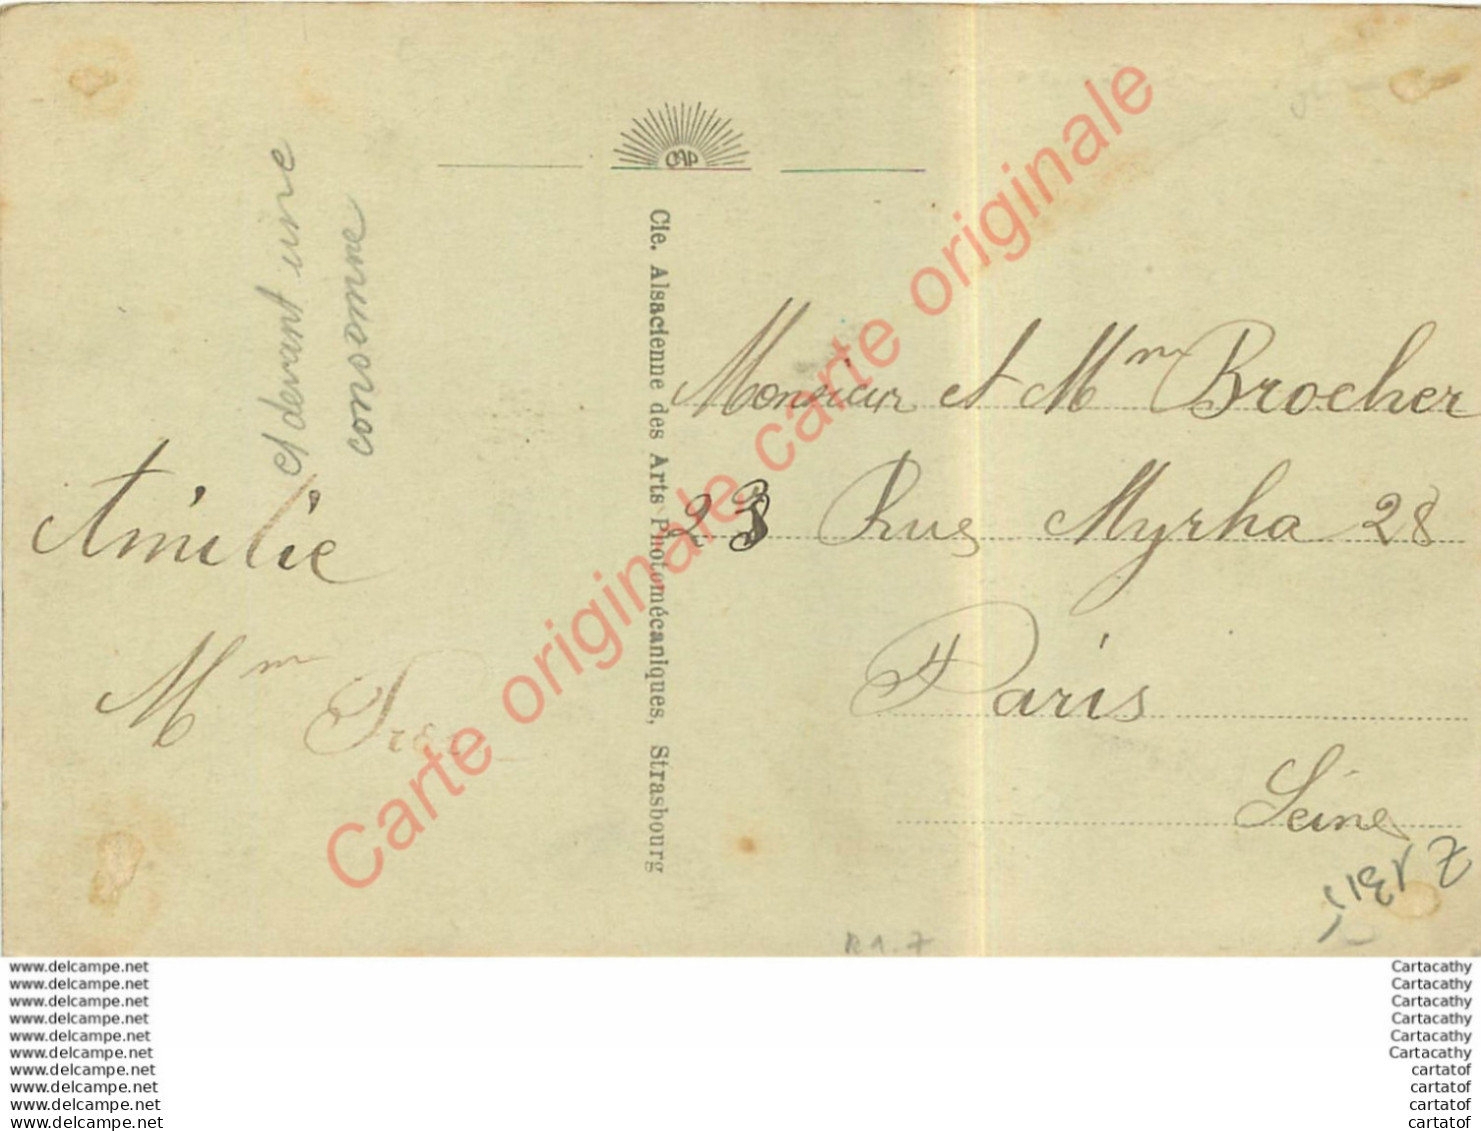 et devant une
couronne
Amélie
Mm
CAP
Cie. Alsacienne des Arts Photomécaniques, Strasbourg
Monsieur et Mm Brocher
23 Rue Myrha 28
Paris
Seine
R1.7
Carte originale carte originale carte originale
www.delcampe.net
www.delcampe.net
www.delcampe.net
www.delcampe.net
www.delcampe.net
www.delcampe.net
www.delcampe.net
www.delcampe.net
www.delcampe.net
www.delcampe.net
Cartacathy
Cartacathy
Cartacathy
Cartacathy
Cartacathy
Cartacathy
cartatof
cartatof
cartatof
cartatof